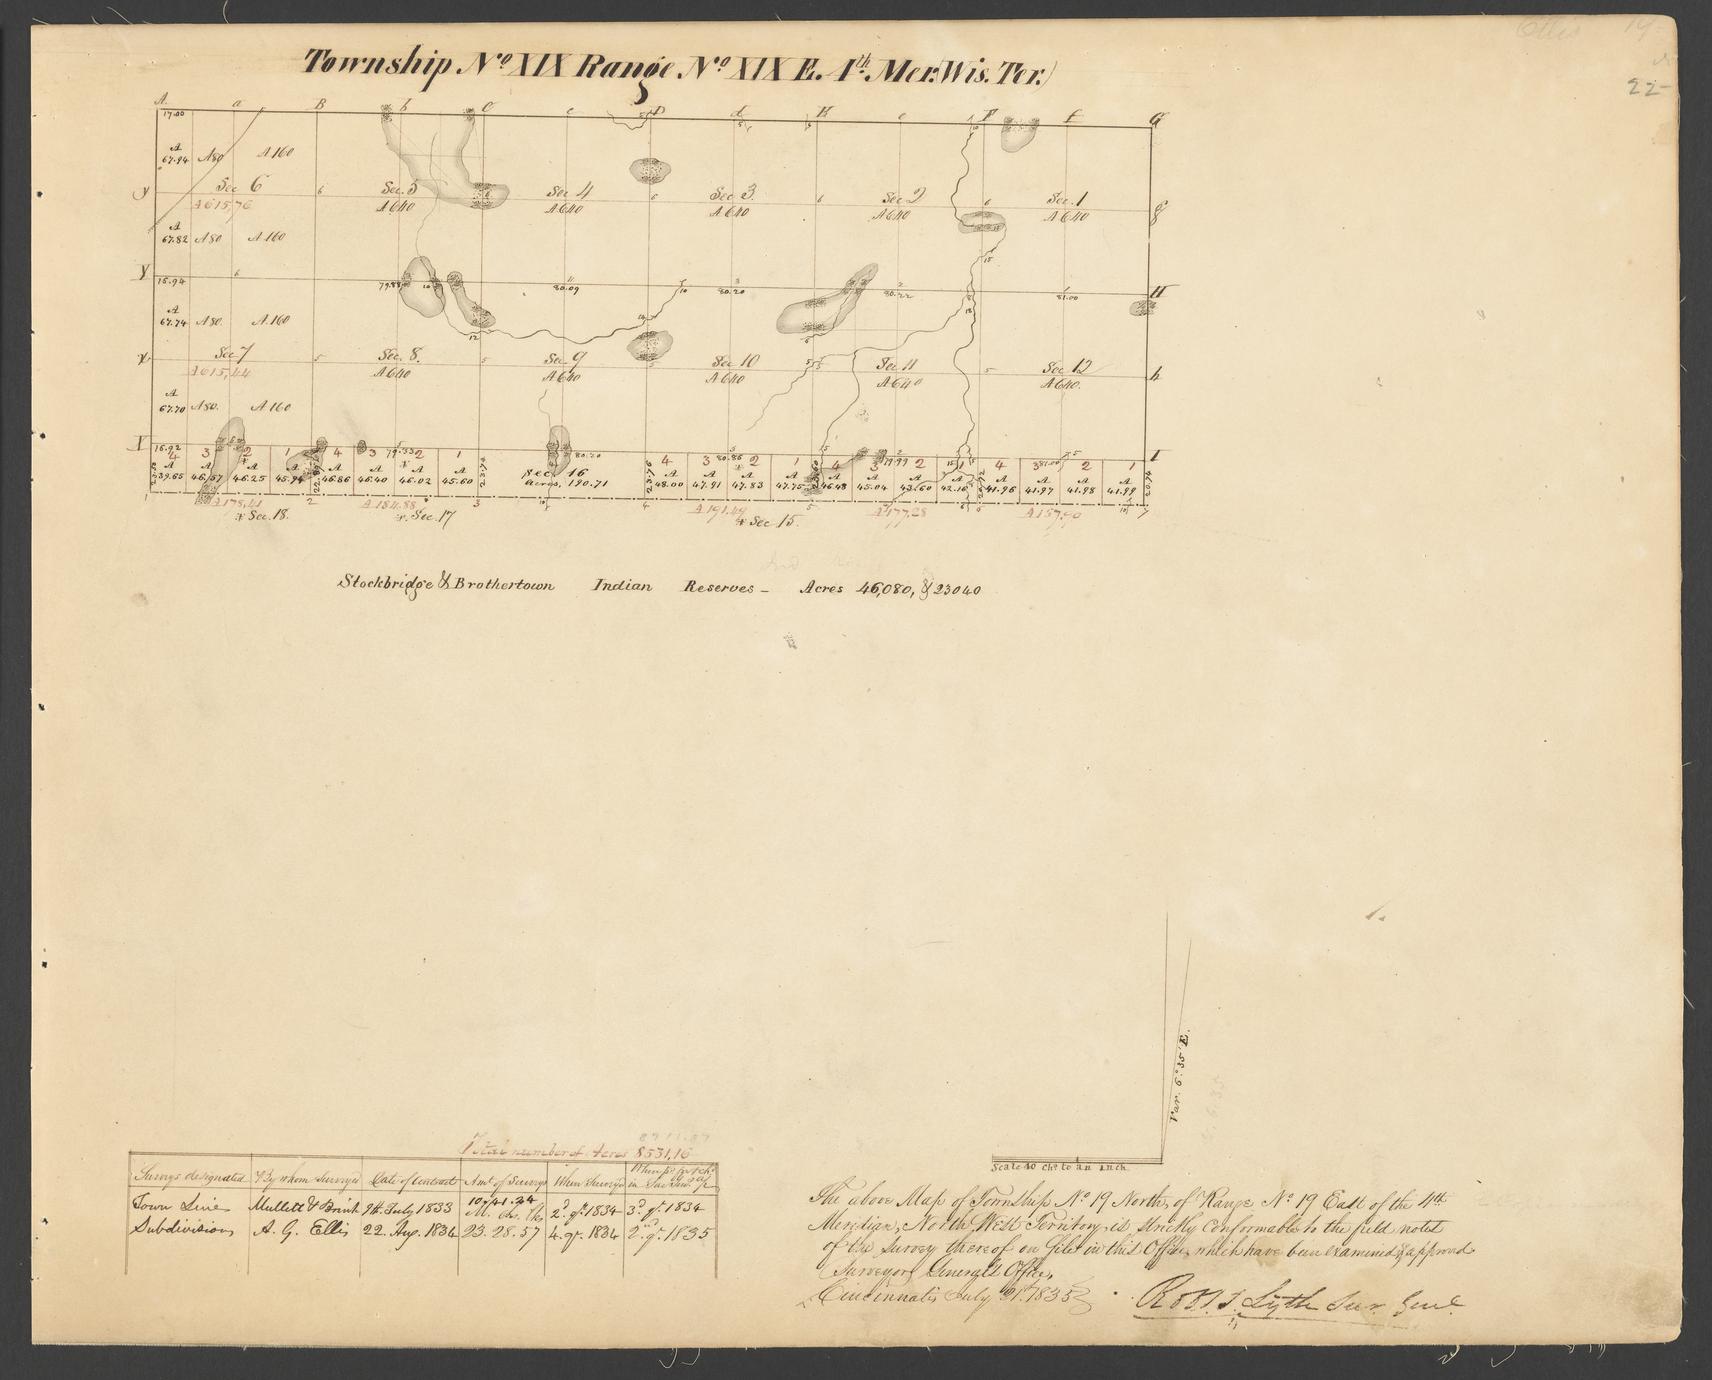 Township No XIX Range No XIX E. 4th Mer. Wis. Ter.)
22
A a B b C c D d E e F f G
17.00
A 67.94 A80 A 160
Sec 6 Sec. 5 Sec 4 Sec 3 Sec 2 Sec. 1
A 615,76 A 640 A 640 A 640 A 640 A 640
A 67.82 A 80 A 160
15.94 79.88 80.09 80.20 80.22 81.00 H
A 67.74 A 80. A. 160
Sec 7 Sec. 8. Sec. 9 Sec 10 Sec 11 Sec 12
A 615,44 A 640 A 640 A 640 A 640 A 640. h
A 67.70 A 80. A 160
16.92 79.33 80.20 80.86 79.99 81.00 I
4 3 2 1 4 3 2 1 4 3 2 1 4 3 2 1 4 3 2 1
39.65 46.57 46.25 45.94 46.86 46.40 46.02 45.60 Sec. 16 48.00 47.91 47.83 47.75 46.48 45.04 43.60 42.16 41.96 41.97 41.98 41.99
Acres, 190.71
23.70 23.76 20.74
A 178,41 A 184.88 A 191.49 A 177.28 A 167.90
* Sec. 18. *. Sec. 17 * Sec 15.
Stockbridge & Brothertown Indian Reserves – Acres 46,080, & 23040
Var. 6° 35' E.
Scale 40 chs. to an inch.
Total number of Acres 8531,16
Survys designated By whom Surveyed Date of Contract Amt. of Survys When Survyd
Town Lines Mullett & Brink 9th. July 1833 10.41.34 2d. qr. 1834 3d. qr. 1834
M. chs. lks
Subdivisions A. G. Ellis 22. Aug. 1834 23.28.57 4. qr. 1834 2nd. qr. 1835
The above Map of Township No 19 North, of Range No 19 East of the 4th
Meridian, North West Territory, is strictly conformable to the field notes
of the Survey thereof on file in this Office, which have been examined & approved
Surveyor General's Office,
Cincinnati July 21st. 1835
Robt. T. Lytle Sur. Genl.